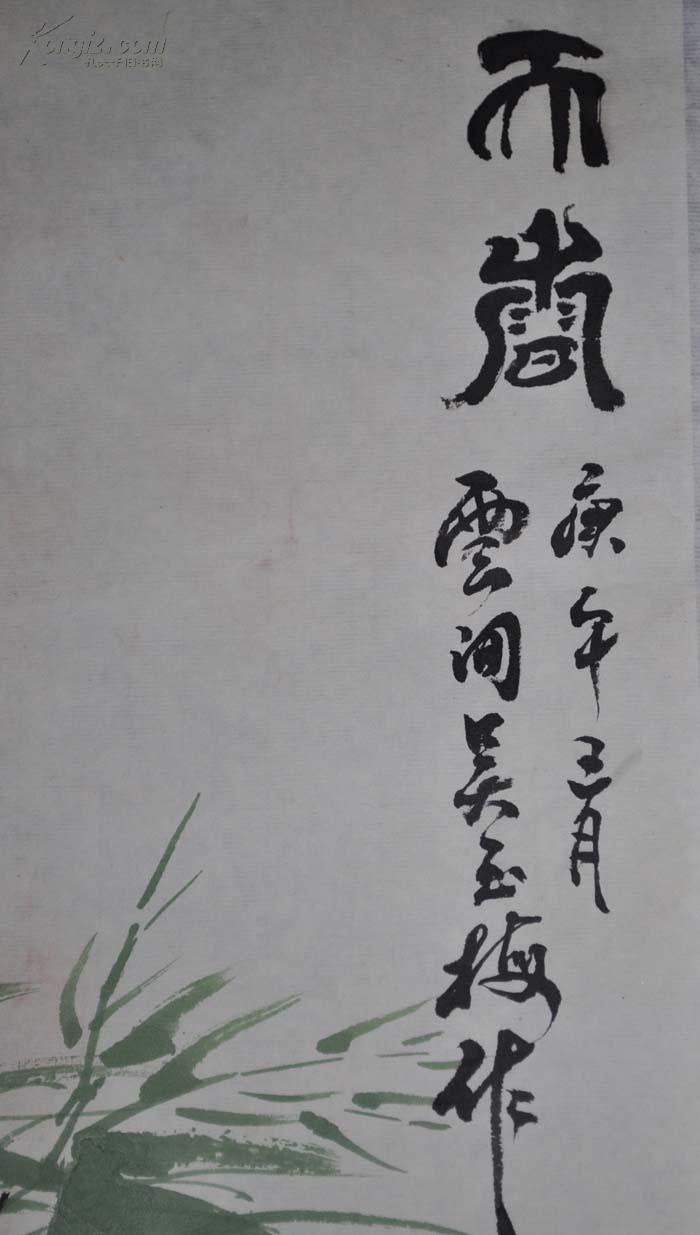 Kongfz.com
孔夫子旧书网
天
庚午三月
雲间吴玉梅作